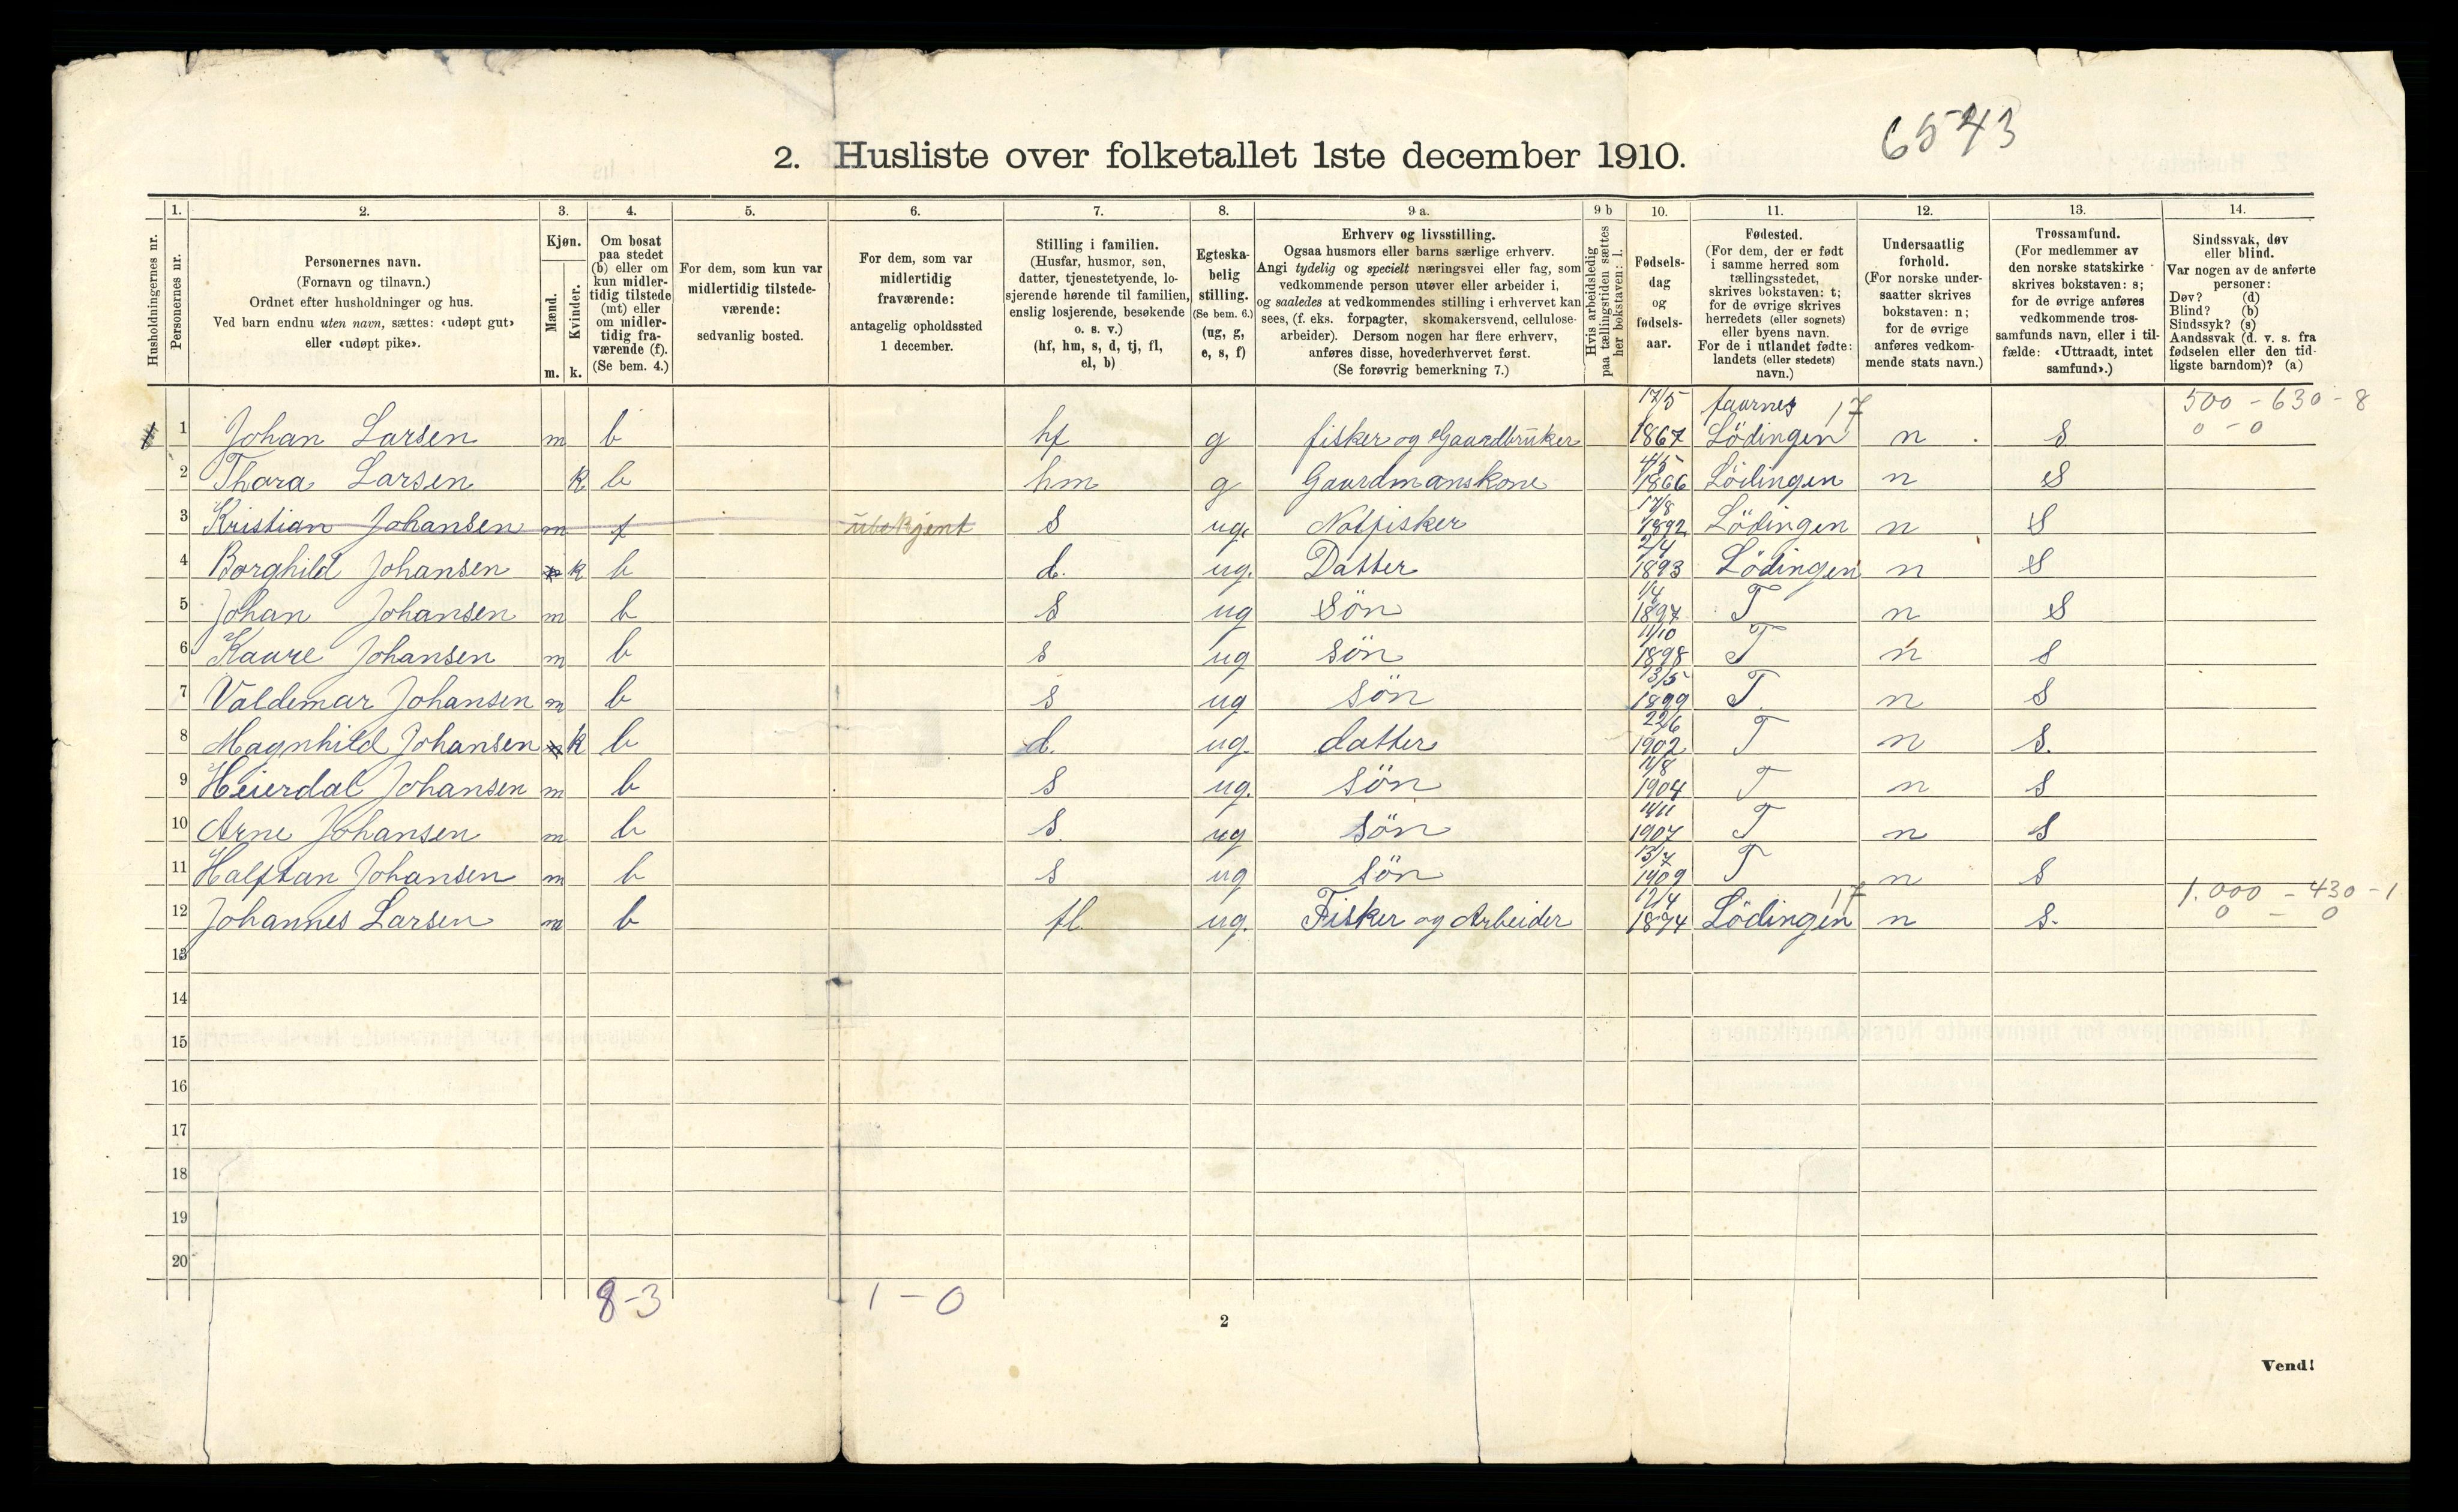 6543
2. Husliste over folketallet 1ste december 1910.
1. 2. 3. 4. 5. 6. 7. 8. 9 a. 9 b 10. 11. 12. 13. 14.
Husholdningernes nr.
Personernes nr.
Personernes navn.
(Fornavn og tilnavn.)
Ordnet efter husholdninger og hus.
Ved barn endnu uten navn, sættes: «udøpt gut»
eller «udøpt pike».
Kjøn.
Mænd.
Kvinder.
m. k.
Om bosat
paa stedet
(b) eller om
kun midler-
tidig tilstede
(mt) eller
om midler-
tidig fra-
værende (f).
(Se bem. 4.)
For dem, som kun var
midlertidig tilstede-
værende:
sedvanlig bosted.
For dem, som var
midlertidig
fraværende:
antagelig opholdssted
1 december.
Stilling i familien.
(Husfar, husmor, søn,
datter, tjenestetyende, lo-
sjerende hørende til familien,
enslig losjerende, besøkende
o. s. v.)
(hf, hm, s, d, tj, fl,
el, b)
Egteska-
belig
stilling.
(Se bem. 6.)
(ug, g,
e, s, f)
Erhverv og livsstilling.
Ogsaa husmors eller barns særlige erhverv.
Angi tydelig og specielt næringsvei eller fag, som
vedkommende person utøver eller arbeider i,
og saaledes at vedkommendes stilling i erhvervet kan
sees, (f. eks. forpagter, skomakersvend, cellulose-
arbeider). Dersom nogen har flere erhverv,
anføres disse, hovederhvervet først.
(Se forøvrig bemerkning 7.)
Hvis arbeidsledig
paa tællingstiden sættes
her bokstaven: l.
Fødsels-
dag
og
fødsels-
aar.
Fødested.
(For dem, der er født
i samme herred som
tællingsstedet,
skrives bokstaven: t;
for de øvrige skrives
herredets (eller sognets)
eller byens navn.
For de i utlandet fødte:
landets (eller stedets)
navn.)
Undersaatlig
forhold.
(For norske under-
saatter skrives
bokstaven: n;
for de øvrige
anføres vedkom-
mende stats navn.)
Trossamfund.
(For medlemmer av
den norske statskirke
skrives bokstaven: s;
for de øvrige anføres
vedkommende tros-
samfunds navn, eller i til-
fælde: «Uttraadt, intet
samfund».)
Sindssvak, døv
eller blind.
Var nogen av de anførte
personer:
Døv? (d)
Blind? (b)
Sindssyk? (s)
Aandssvak (d. v. s. fra
fødselen eller den tid-
ligste barndom)? (a)
17/5 17 500 - 630 - 8
1 Johan Larsen m b hf g fisker og Gaardbruker 1867 Lödingen n s 0 - 0
2 Thora Larsen k b hm g Gaardmanskone 4/5 1866 Lödingen n s
3 Kristian Johansen m f ubekjent s ug. Notfisker 17/8 1892 Lödingen n s
4 Borghild Johansen k b d. ug. Datter 2/4 1893 Lödingen n s
5 Johan Johansen m b s ug Sön 1897 T n s
6 Kaare Johansen m b s ug sön 11/10 1898 T n s
7 Valdemar Johansen m b s ug sön 13/5 1899 T. n s
8 Magnhild Johansen k b d. ug. datter 22/6 1902 T n s.
9 Heierdal Johansen m b s ug. sön 11/8 1904 T n s
10 Arne Johansen m b s. ug sön 14/11 1907 T n s
11 Halftan Johansen m b s ug sön 13/7 1909 T n s
17 1.000 - 430 - 1
12 Johannes Larsen m b fl ug. Fisker og Arbeider 12/4 1874 Lödingen n s. 0 - 0
13
14
15
16
17
18
19
20
8-3 1-0
2
Vend!